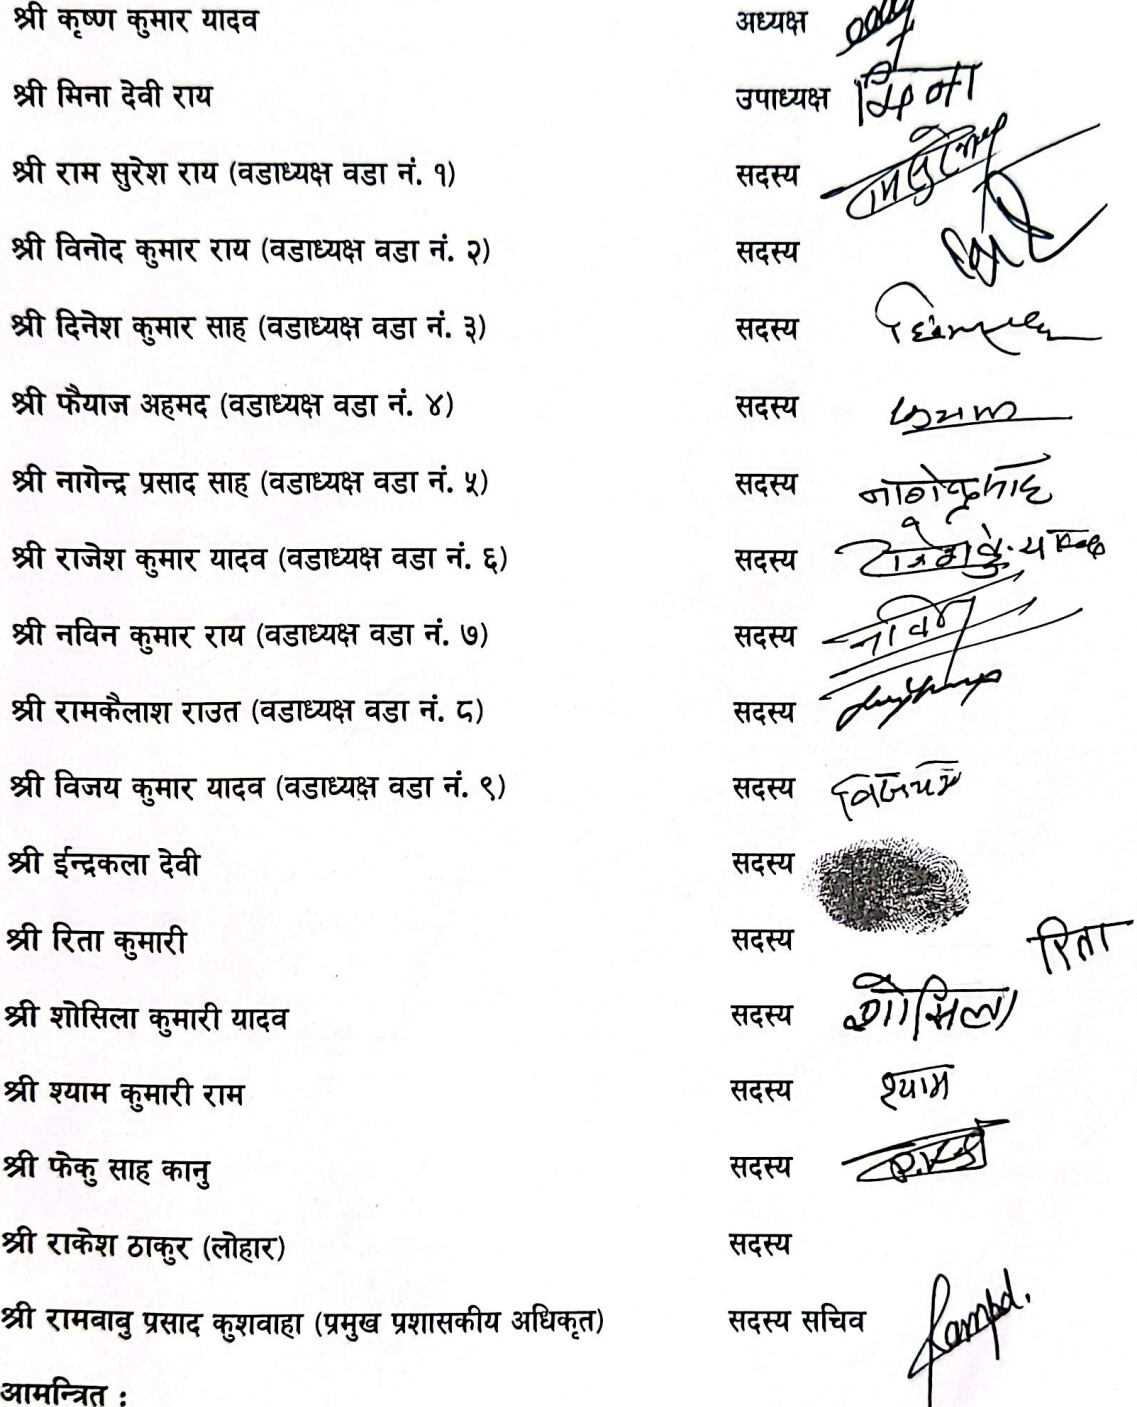 श्री कृष्ण कुमार यादव अध्यक्ष
श्री मिना देवी राय उपाध्यक्ष मिना
श्री राम सुरेश राय (वडाध्यक्ष वडा नं. १) सदस्य
श्री विनोद कुमार राय (वडाध्यक्ष वडा नं. २) सदस्य
श्री दिनेश कुमार साह (वडाध्यक्ष वडा नं. ३) सदस्य
श्री फैयाज अहमद (वडाध्यक्ष वडा नं. ४) सदस्य
श्री नागेन्द्र प्रसाद साह (वडाध्यक्ष वडा नं. ५) सदस्य
श्री राजेश कुमार यादव (वडाध्यक्ष वडा नं. ६) सदस्य
श्री नविन कुमार राय (वडाध्यक्ष वडा नं. ७) सदस्य
श्री रामकैलाश राउत (वडाध्यक्ष वडा नं. ८) सदस्य
श्री विजय कुमार यादव (वडाध्यक्ष वडा नं. ९) सदस्य
श्री ईन्द्रकला देवी सदस्य
श्री रिता कुमारी सदस्य रिता
श्री शोसिला कुमारी यादव सदस्य शोसिला
श्री श्याम कुमारी राम सदस्य श्याम
श्री फेकु साह कानु सदस्य
श्री राकेश ठाकुर (लोहार) सदस्य
श्री रामबाबु प्रसाद कुशवाहा (प्रमुख प्रशासकीय अधिकृत) सदस्य सचिव
आमन्त्रित :